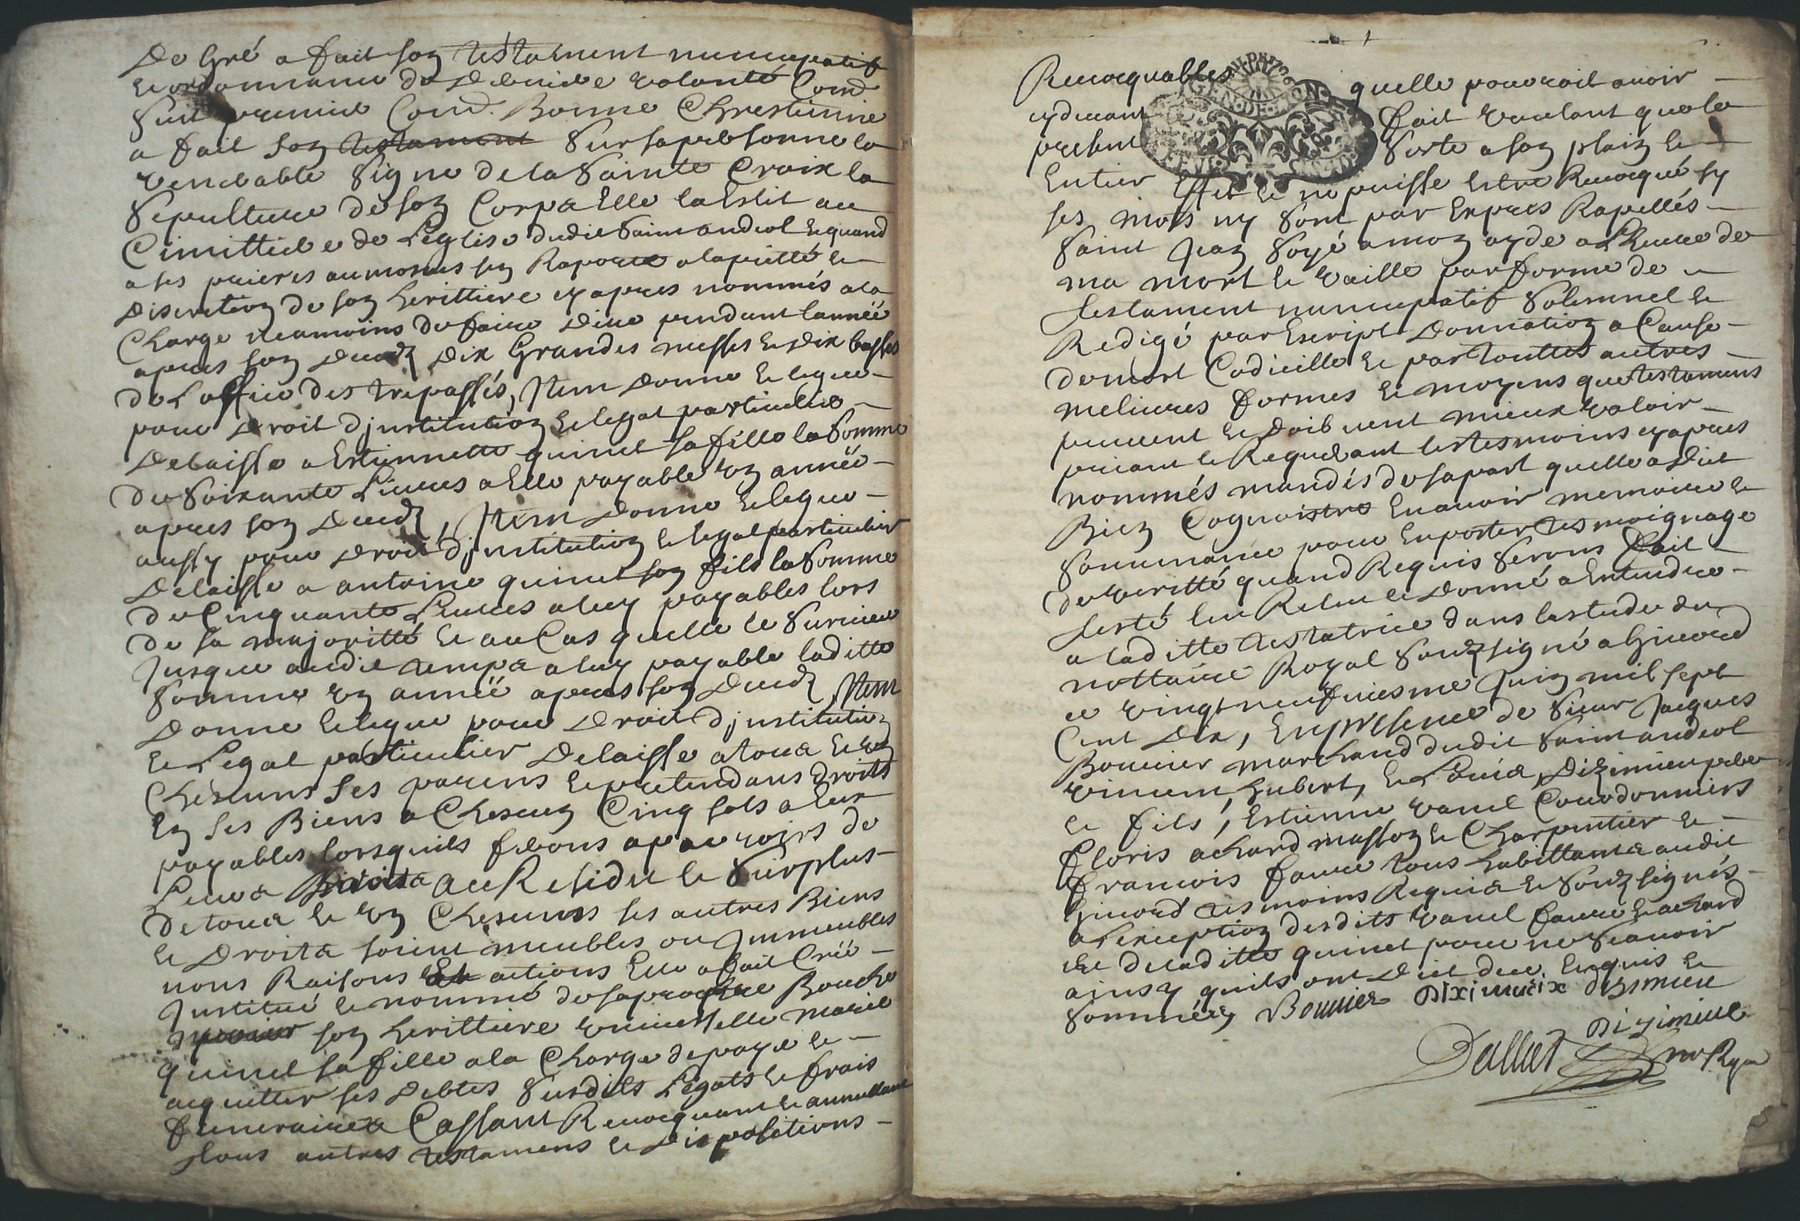 De Gré a fait son testament nuncupatif
et ordonnance de derniere volonté Com̅e
suit premier Com̅e Bonne Chrestienne
a fait son testament sur sa personne le
venerable signe de la Sainte Croix la
sepulture de son Corps Elle la Eslit au
Cimittiere de Leglise dudit Saint andeol et quand
a ses prieres aumosnes sen Raporte a la pietté et
discretion de son herittiere cy apres nommés a la
Charge neamoins de faire dire pendant lannéé
apres son deceds dix Grandes messes et dix basses
de Loffice des trepassés, Item donne et legue
pour droit djnstitution et legat particulier
delaisse a Estiennette quinet sa fille la somme
de soixante Liures a Elle payable un année
apres son deceds, Item donne et legue
aussy pour droit djnstitution et legat particulier
delaisse a antoine quinet son fils la somme
de Cinquante Liures a luy payables lors
de sa majoritté et au Cas quelle le suruiue
jusque audit temps a luy payable laditte
somme un année apres son deceds Item
donne et legue pour droit djnstitution
et Legat particulier delaisse a tous et un
Chescuns ses parens et pretendans droits
En ses Biens a Chescun Cinq sols a Eux
payables lorsquils feront aparoirs de
Leurs droits au Residu et surplus
de tous et un Chescuns ses autres Biens
et droits soient meubles ou Immeubles
noms Raisons Et actions Elle a fait Créé
Institué et nommé de sa propre Bouche
son herittiere vniuerselle marie
quinet sa fille a la Charge de payé et
acquitter ses debtes susdits Legats et frais
funeraires Cassant Reuocquant et annullant
tous autres testamens et dispositions
Reuocquables quelle pourroit auoir
cy deuant fait voulant que le
present sorte a son plain et
Entier Effet et ne puisse Estre Reuocqué sy
ses mots ny sont par Expres Rapellés
Saint Jean soyé a mon ayde a Lheure de
ma mort et vaille par forme de
testament nuncupatif solemnel et
Redigé par Escript donnation a Cause
de mort Codicille et par touttes autres
melieures formes et moyens que testamens
peuuent et doibuent mieux valoir
priant et Requerant les tesmoins cy apres
nommés mandés de sa part quelle a dit
Bien Cognoistre En auoir memoire et
souuenance pour En porter tesmoignage
de veritté quand Requis seront fait
testé leu Releu et donné a Entendre
a laditte testatrice dans lestude du
nottaire Royal soubsigné a Giuord
ce vingt neufuiesme Juin mil sept
Cent dix, En presence de sieur Jacques
Bouuier marchand dudit saint andeol
vincent hubert, et Louis dizimieu pere
et fils, Estienne vanel Courdonniers
floris achard masson et Charpentier et
francois faure tous habittants audit
Giuord tesmoins Requis et soubsignés
a lexception desdits vanel faure et achard
et de laditte quinet pour ne scauoir
ainsy quils ont dict deu. Enquis et
sommées Bouuier Diximieix disimieu
dizimieu
Dallier no Ryal